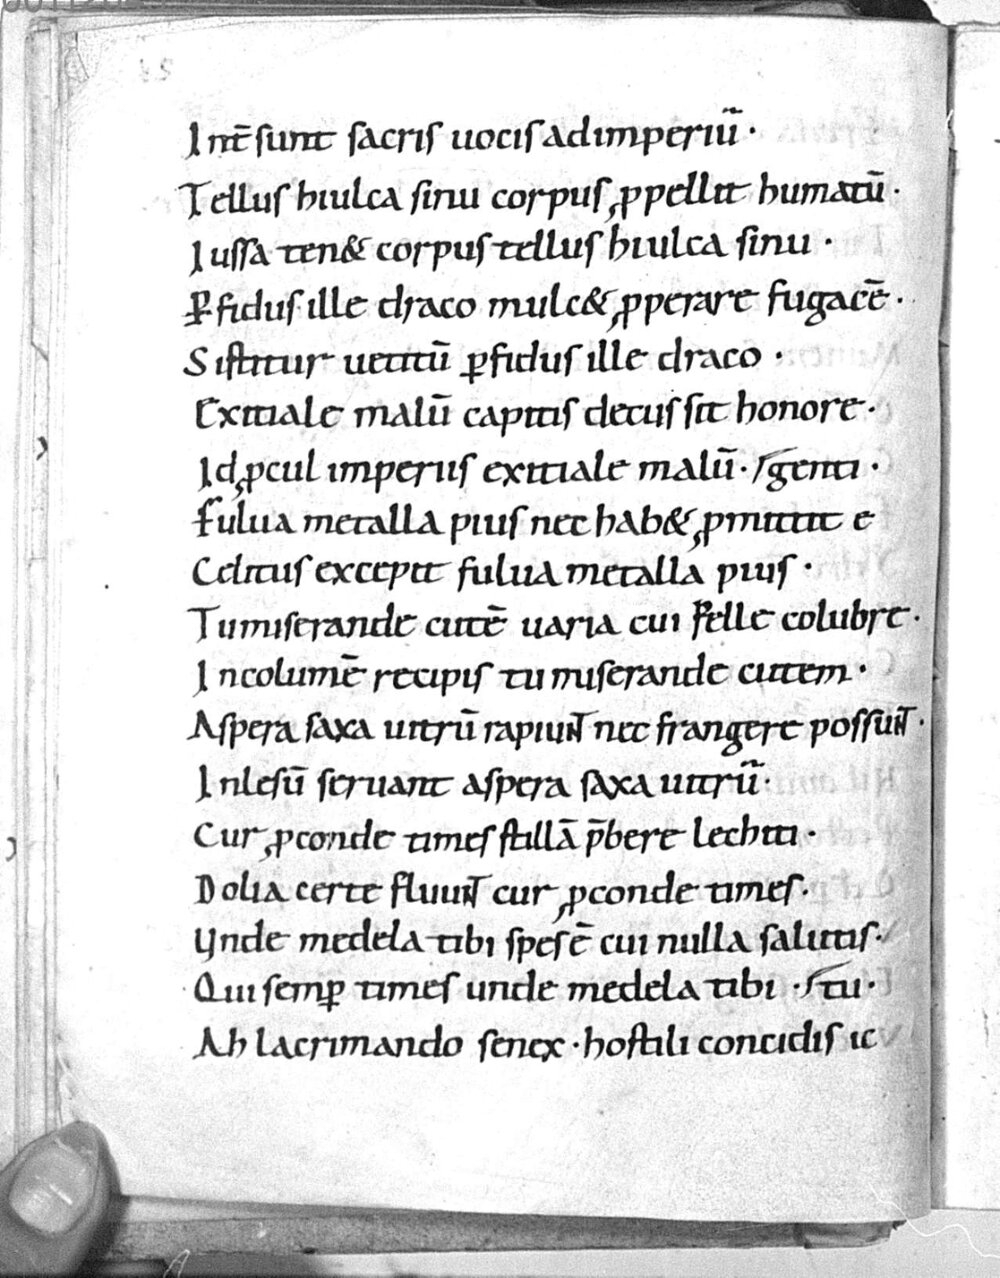 Int̄ sunt sacris uocis ad imperiū ·
Tellus hiulca sinu corpus ꝓpellit humatū ·
Iussa ten& corpus tellus hiulca sinu ·
Ꝑfidus ille draco mulc& ꝓperare fugacē ·
Sistitur uetitū ꝑfidus ille draco ·
Exitiale malū capitis decus sit honore ·
Id ꝓcul imperiis exitiale malū ·
Fulua metalla pius nec hab& ꝓmittit e
Celitus excepit fulua metalla pius ·
Tu miserande cutē uaria cui pelle colubre ·
Incolumē recipis tu miserande cutem ·
Aspera saxa uitrū rapiunt nec frangere possunt ·
Inlesū seruant aspera saxa uitrū ·
Cur ꝓconde times stillā p̄bere lechiti ·
Dolia certe fluunt cur ꝓconde times ·
Vnde medela tibi spes ē cui nulla salutis ·
Qui semꝑ times unde medela tibi ·
Ah lacrimando senex · hostili concidis ic